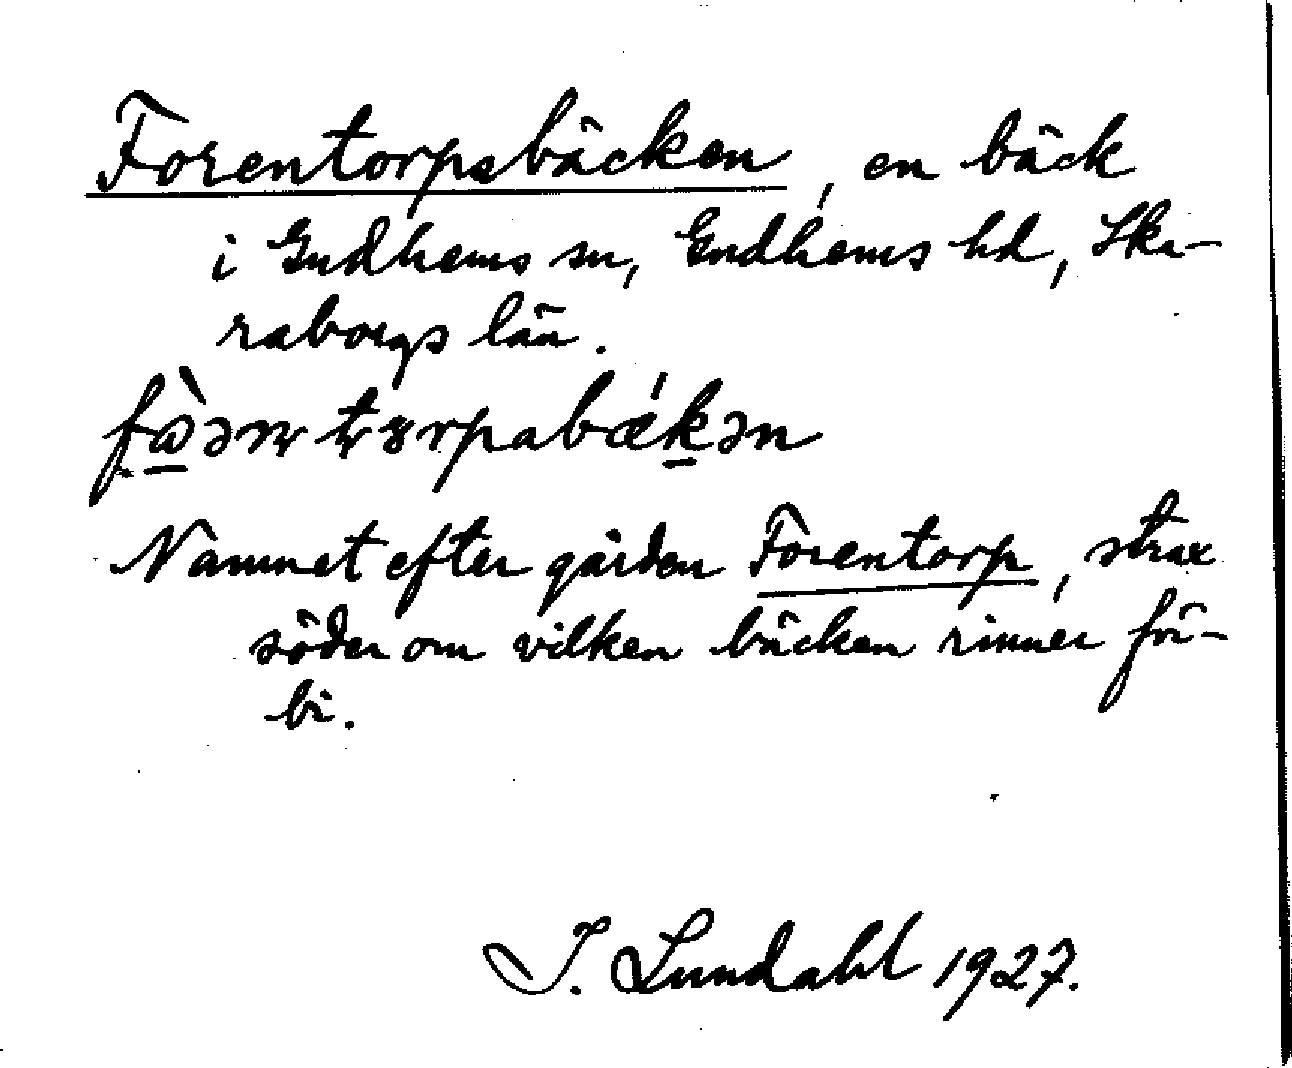 Forentorpsbäcken, en bäck
i Gudhems sn, Gudhems hd, Ska-
raborgs län.
Namnet efter gården Forentorp, strax
söder om vilken bäcken rinner för-
bi.
I. Lundahl 1927.